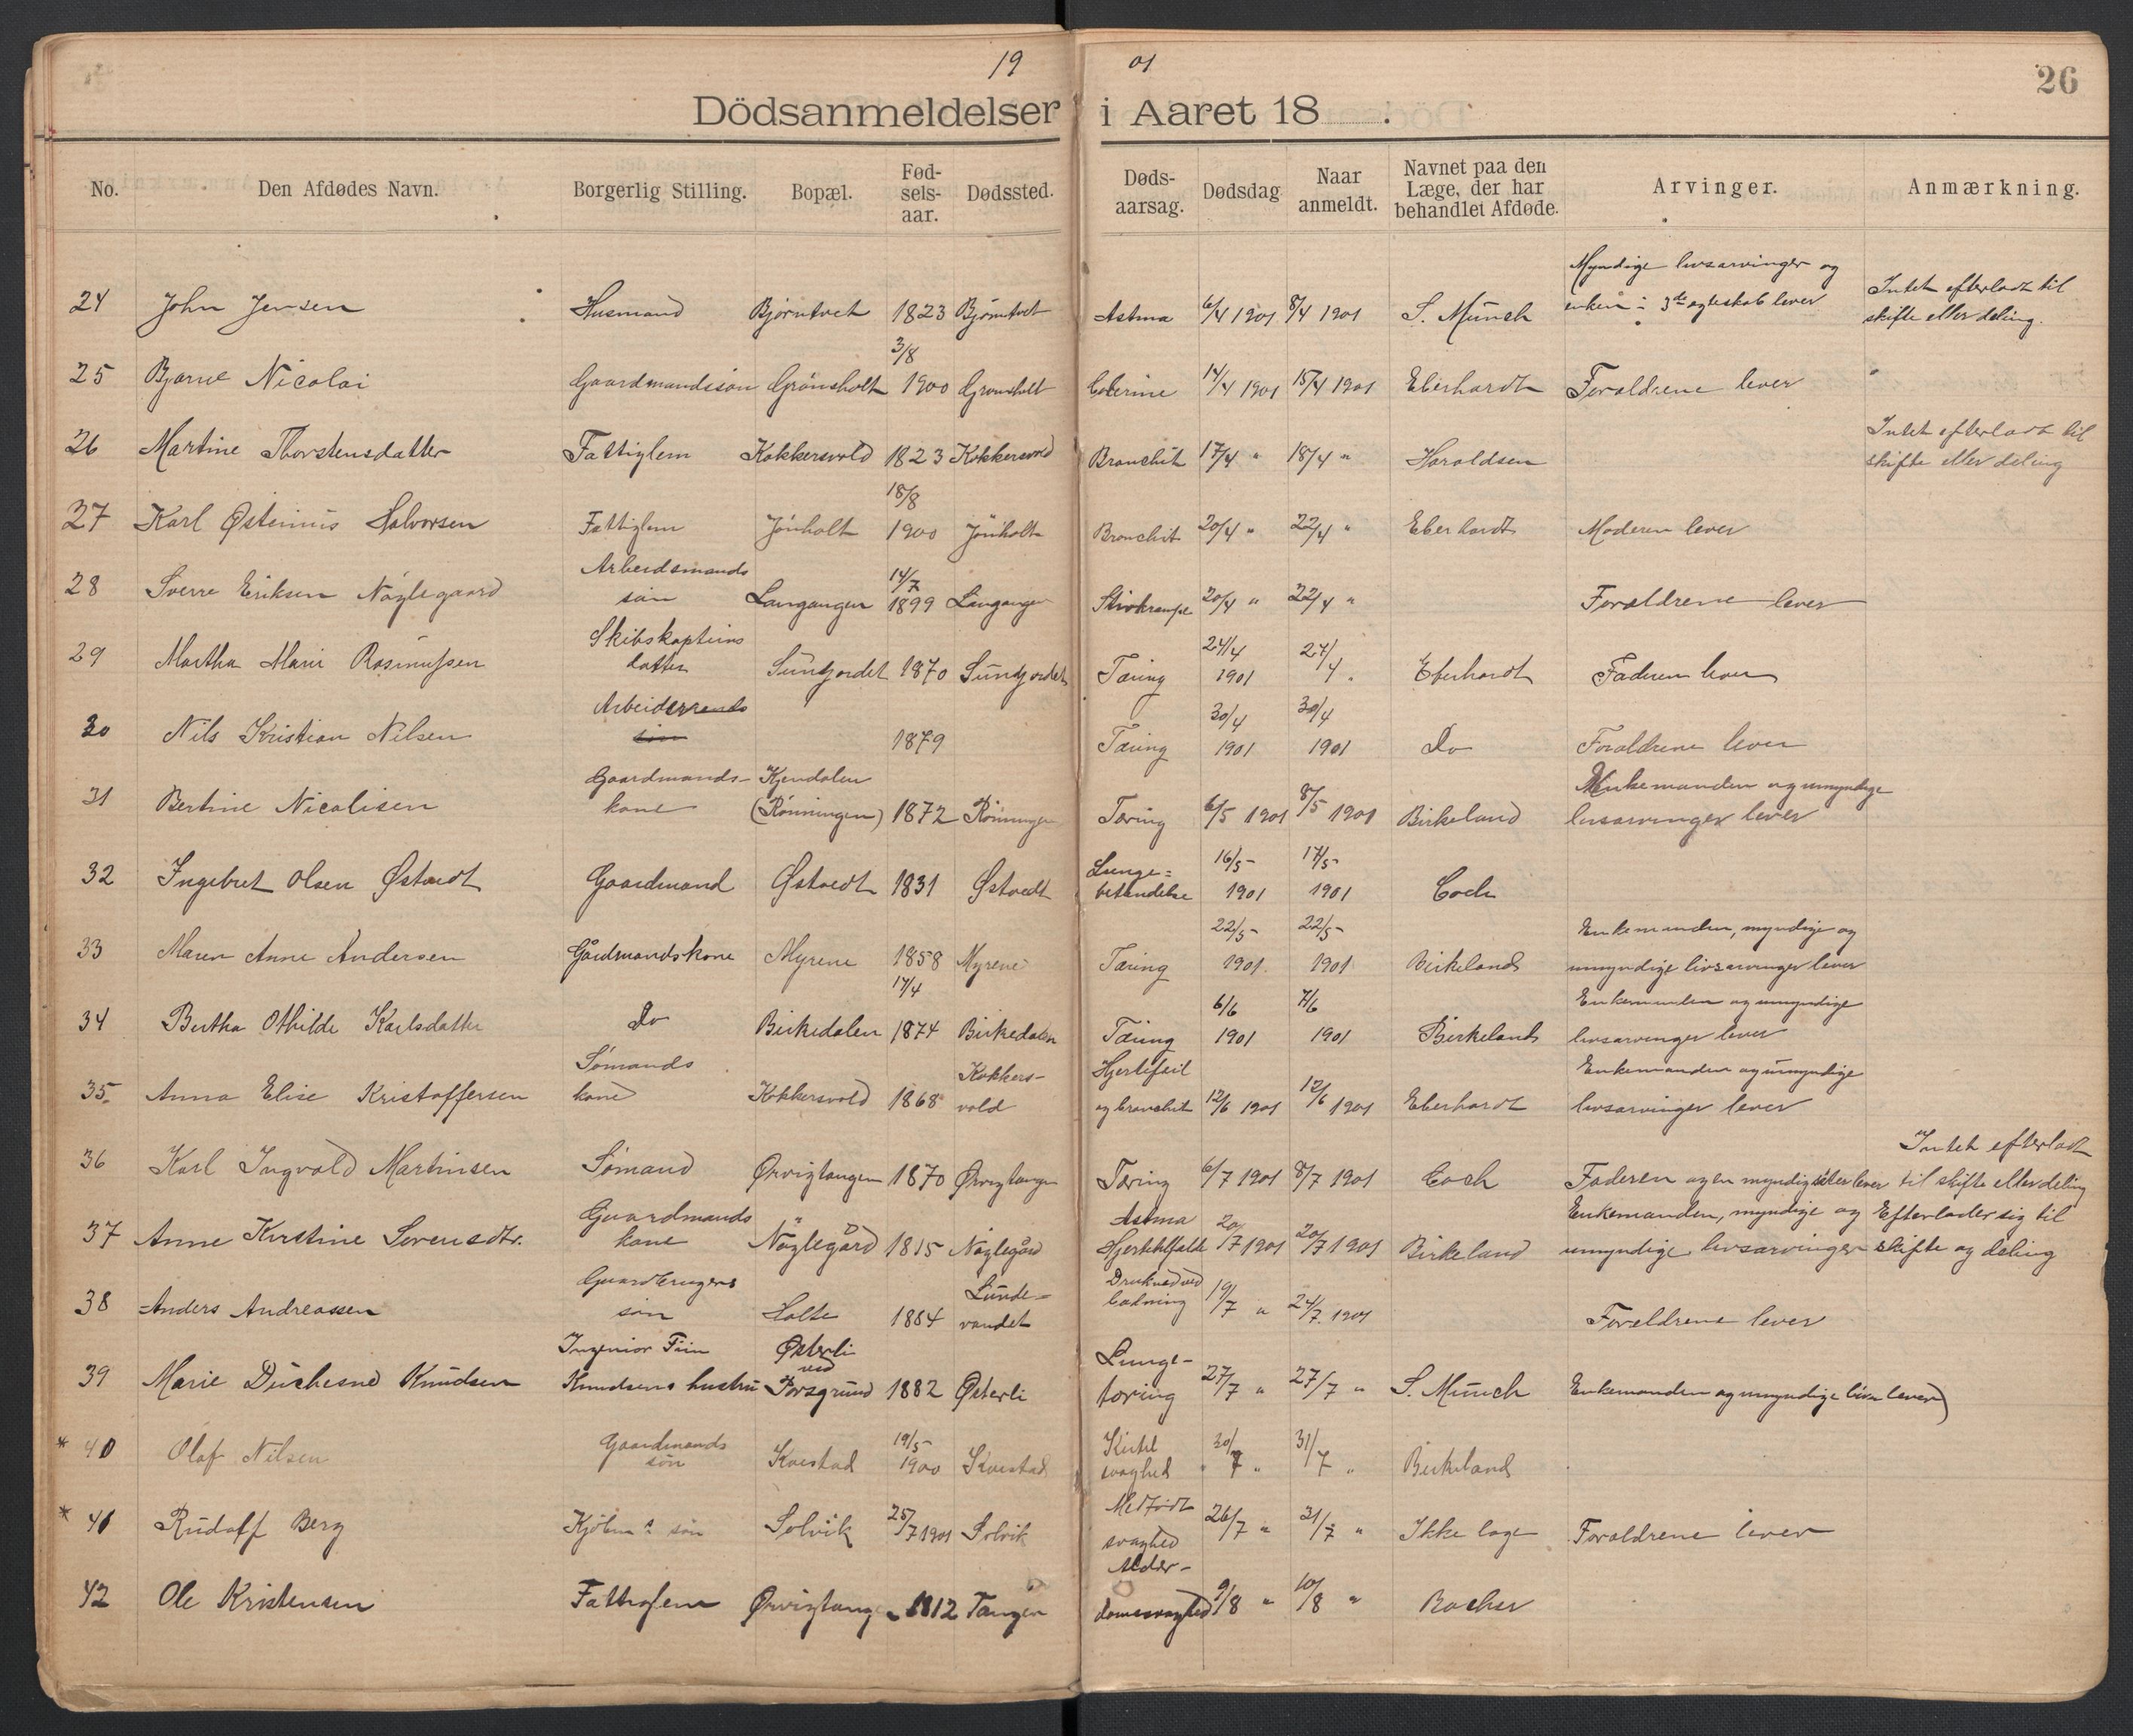 19 01
26
Dödsanmeldelser i Aaret 18 .
No. Den Afdødes Navn. Borgerlig Stilling. Bopæl. Fød-sels-aar. Dødssted. Døds-aarsag. Dødsdag Naar anmeldt. Navnet paa den Læge, der har behandlet Afdøde. Arvinger. Anmærkning.
Myndige livsarvinger og
24 John Jensen Husmand Bjørntvet 1823 Bjørntvet Astma 6/4 1901 8/4 1901 S. Münch enken i 3die egteskab lever Intet efterladt til
skifte eller deling.
3/8
25 Bjarne Nicolai Gaardmandssøn Grønsholt 1900 Gronsholt Colerine 14/4 1901 15/4 1901 Eberhardt Foraldrene lever
26 Martine Thorstensdatter Fattiglem Kokkersvold 1823 Kokkersvold Bronchit 17/4 " 18/4 " Haroldsen Intet efterladt til
skifte eller deling
18/8
27 Karl Østenius Halvorsen Fattiglem Jönholt 1900 Jönholt Bronchit 20/4 " 22/4 " Eberhardt Moderen lever
Arbeidsmands 14/7
28 Sverre Eriksen Nøglegaard søn Langangen 1899 Langangen Stivkrampe 20/4 " 22/4 " Foraldrene lever
Skibskapteins 24/4 27/4
29 Martha Marie Rasmussen datter Sundjordet 1870 Sundjordet Tæring 1901 Eberhardt Faderen lever
Arbeider 30/4 30/4
30 Nils Kristian Nilsen søn 1879 Tæring 1901 1901 Do Foraldrene lever
Gaardmands- Kjendalen Enkemanden og umyndige
31 Bertine Nicolisen kone (Rønningen) 1872 Rønningen Tæring 6/5 1901 8/5 1901 Birkeland livsarvinger lever
Lunge= 16/5 17/5
32 Ingebret Olsen Østvedt Gaardmand Østvedt 1831 Østvedt betændelse 1901 1901 Coch
22/5 22/5 Enkemanden, myndige og
33 Maren Anne Andersen Gårdmandskone Myrene 1858 Myrene Tæring 1901. 1901 Birkeland umyndige livsarvinger lever
17/4 6/6 7/6 Enkemanden og umyndige
34 Bertha Othilde Karlsdatter Do Birkedalen 1874 Birkedalen Tæring 1901 1901 Birkeland livsarvinger lever
Sömands Kokkers- Hjertefeil Enkemanden og umyndige
35. Anna Elise Kristoffersen kone Kokkersvold 1868 vold og bronchit 12/6 1901 12/6 1901 Eberhardt livsarvinger lever
Intet efterladt
36 Karl Ingvald Martinsen Sömand Ørvigtangen 1870 Ørvigtangen Tæring 6/7 1901 8/7 1901 Coch Faderen og en myndig söster lever til skifte eller deling
Gaardmands Astma Enkemanden, myndige og Efterlader sig til
37 Anne Kirstine Sørensdtr. kone Nøglegård 1815 Nøglegård 20/7 1901 20/7 1901 Birkeland umyndige livsarvinger skifte og deling
Gaardbrugers Lunde- Druknet ved
38 Anders Andreassen søn Holte 1884 vandet badning 19/7 " 24/7. 1901 Foreldrene lever
Ingeniør Fin Østerli ved Lunge-
39 Marie Düchesne Knudsen Knudsens hustru Porsgrund 1882 Østerli tæring 27/7 " 27/7 " S. Münch Enkemanden og umyndige lever
Gaardmands 19/5 Kirtel
* 40 Olaf Nilsen søn Kvestad 1900 Kvestad svaghed 30/7 " 31/7 " Birkeland
Medfødt
* 41 Rüdolf Berg søn Solvik 25/7 1901 Solvik svaghed 26/7 " 31/7 " Ikke læge Foraldrene lever
Alder-
42 Ole Kristensen Fattiglem Ørvigtangen 1812 Tangen domssvaghed 9/8 " 10/8 "